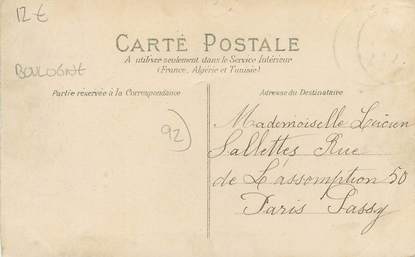 12 €
CARTE POSTALE
A utiliser seulement dans le Service Intérieur
(France, Algérie et Tunisie)
BOULOGNE
Partie réservée à la Correspondance
Adresse du Destinataire
92
Mademoiselle Lucien
Sallettes Rue
de Lassomption 50
Paris Passy